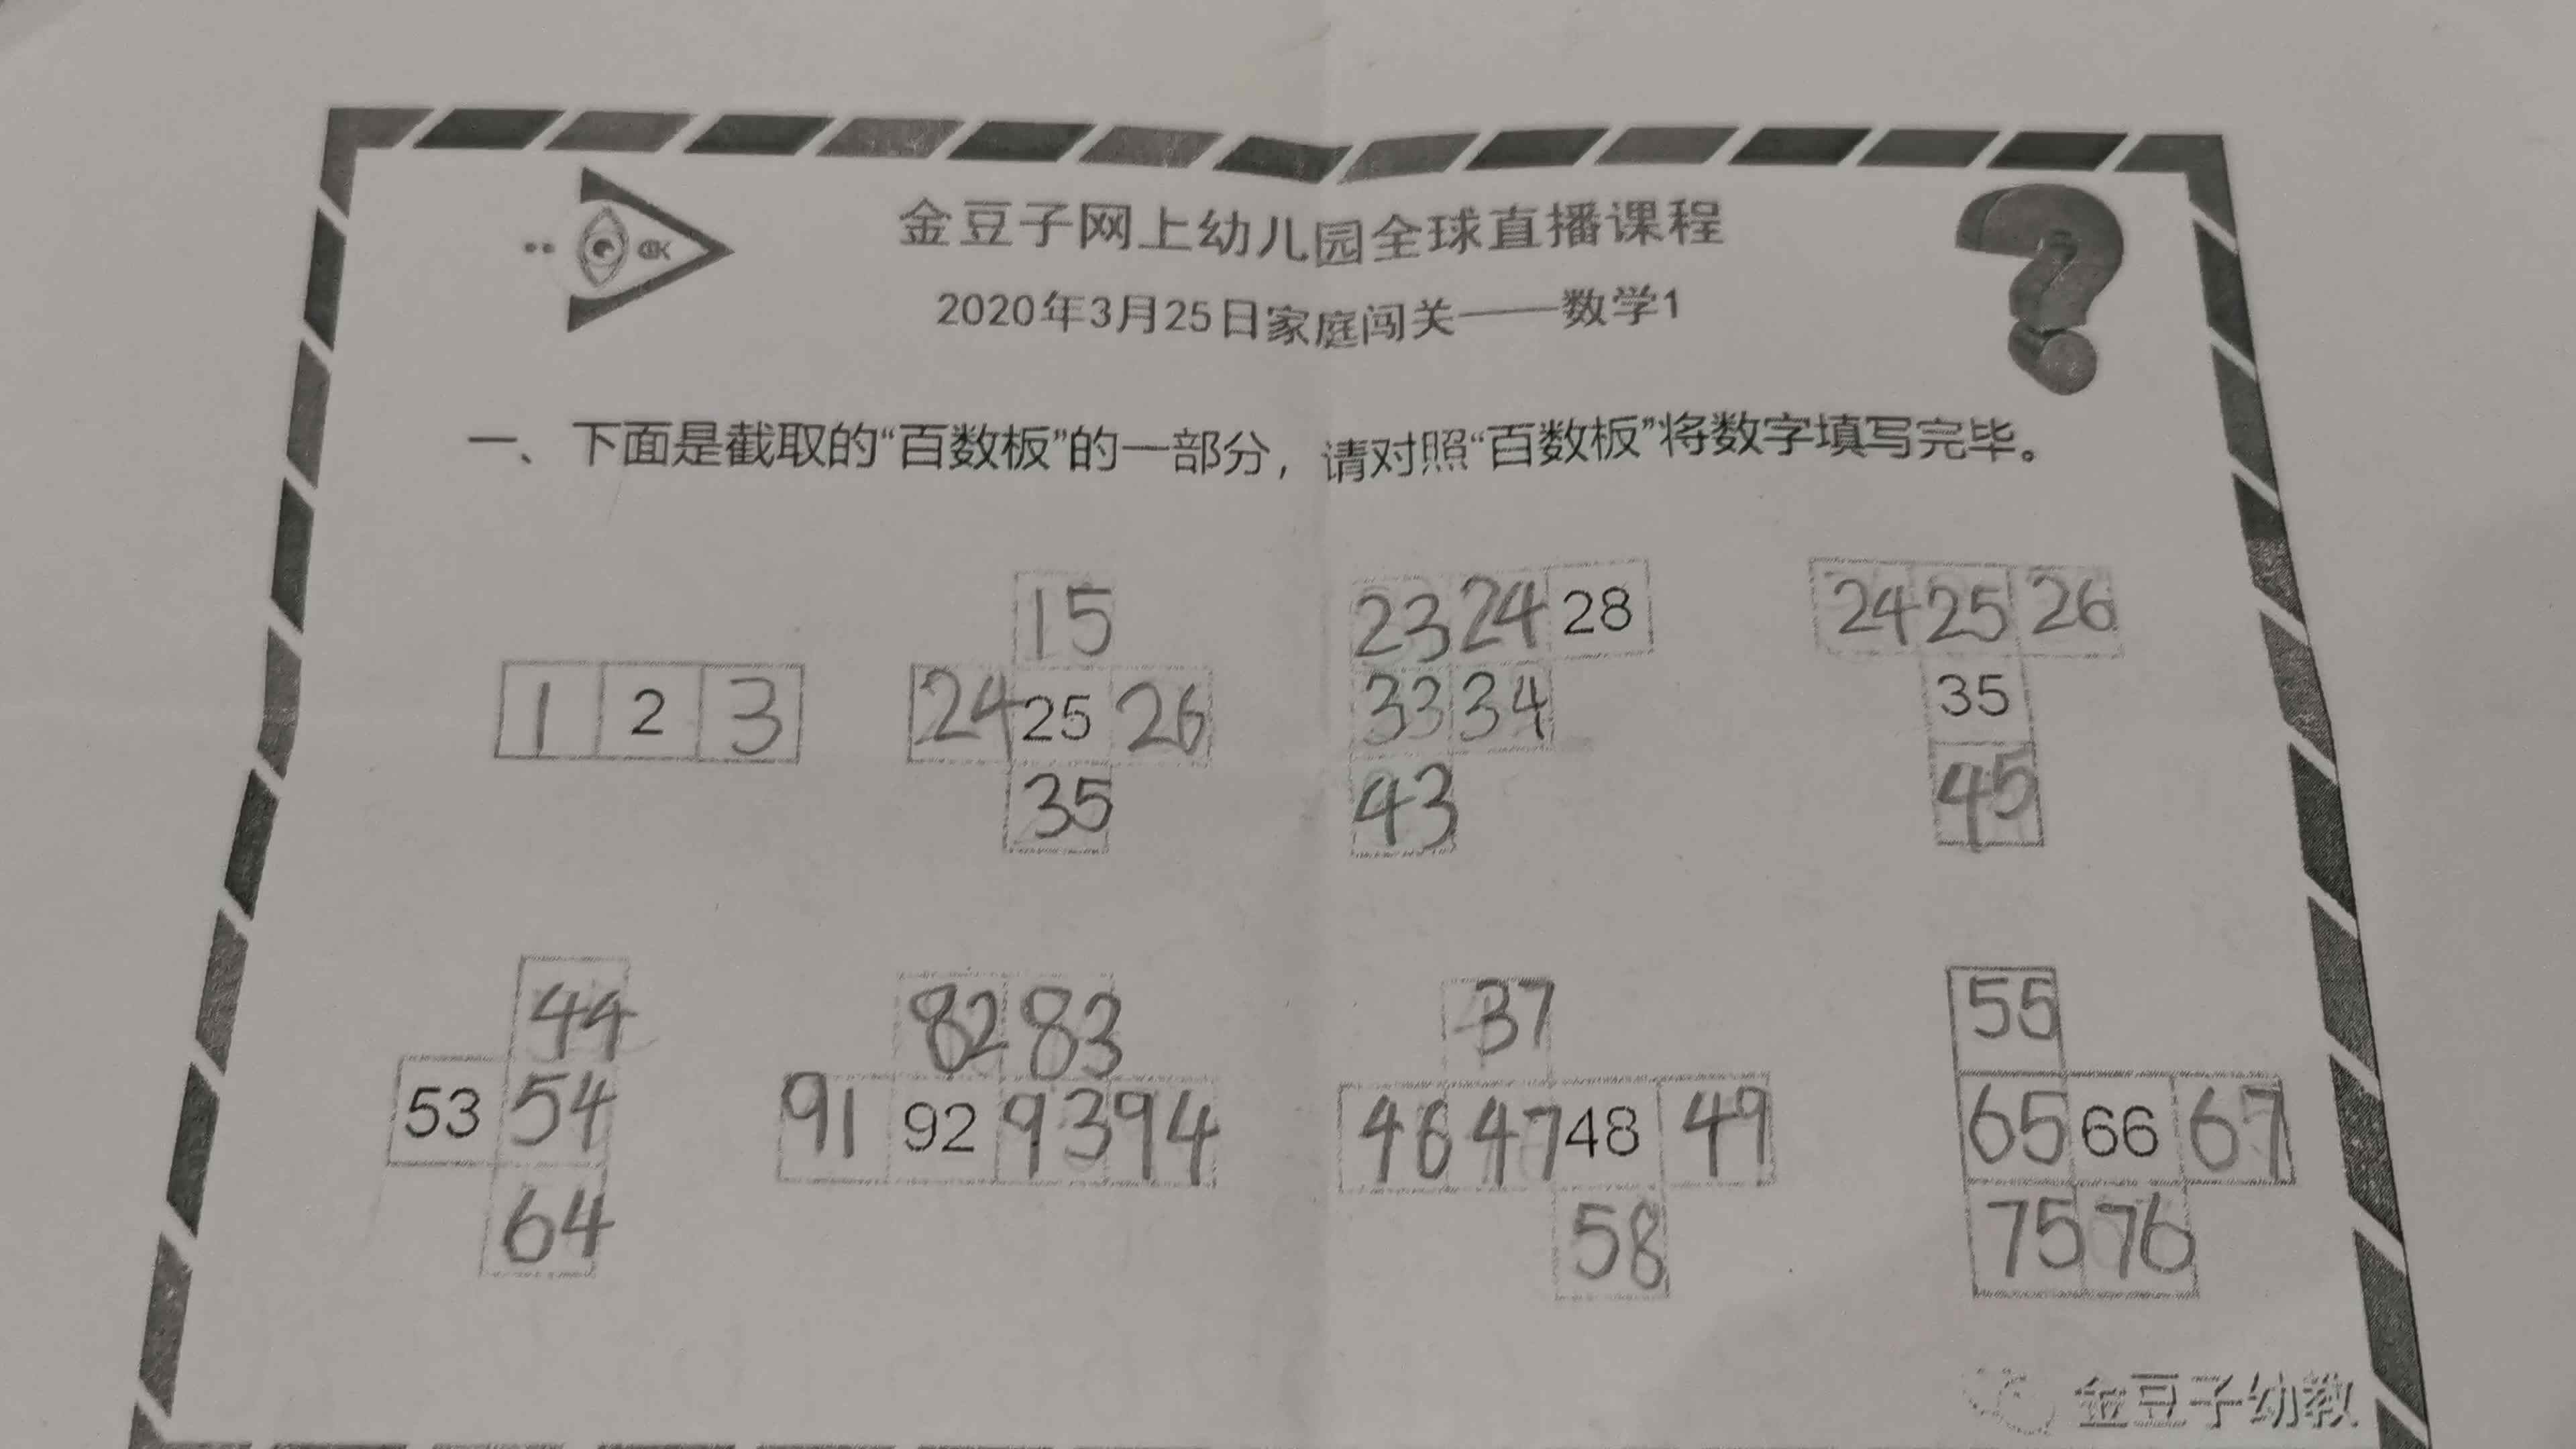 金豆子网上幼儿园全球直播课程
2020年3月25日家庭闯关——数学1
一、下面是截取的“百数板”的一部分，请对照“百数板”将数字填写完毕。
15
23 24 28
24 25 26
1 2 3
24 25 26
33 34
35
35
43
45
44
82 83
37
55
53 54
91 92 93 94
46 47 48 49
65 66 67
64
58
75 76
金豆子幼教